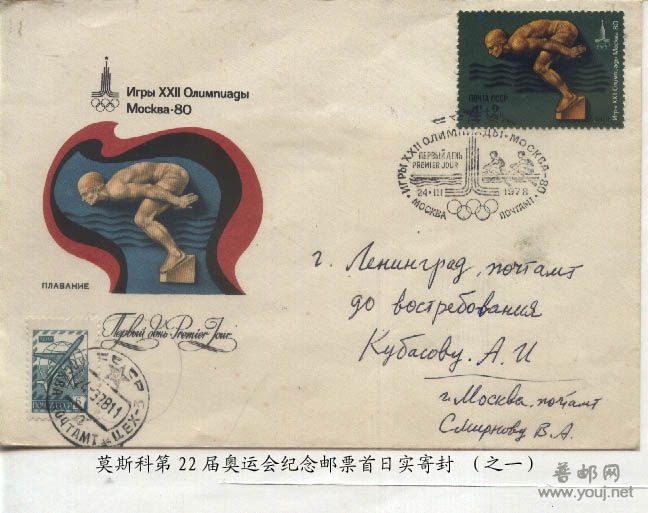 Игры XXII Олимпиады
Москва·80
ПЛАВАНИЕ
Первый день Premier Jour
ПОЧТА СССР
Игры XXII Олимпиады Москва 80
ИГРЫ XXII ОЛИМПИАДЫ·МОСКВА-80
ПЕРВЫЙ ДЕНЬ
PREMIER JOUR
24·III 1978
МОСКВА ПОЧТАМТ
г. Ленинград, почтамт
до востребования
Кубасову. А. И
г. Москва, почтамт
Смирнову В.А.
СССР
ПОЧТАМТ ЦЕХ-3
莫斯科第 22 届奥运会纪念邮票首日实寄封 （之一）
普邮网
www.youj.net